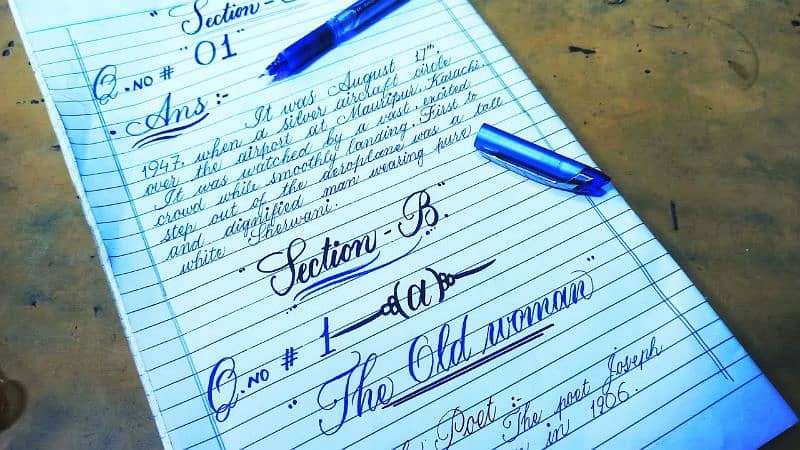 "Section-
Q.NO # "01"
Ans :-
It was August 17th,
1947, when a silver aircraft circle
over the airport at Mauripur, Karachi.
It was watched by a vast, excited
crowd while smoothly landing. First to
step out of the aeroplane was a tall
and dignified man wearing pure
white Sherwani.
"Section-B"
Q.NO # 1 (a)
"The Old woman"
Poet :-
The poet Joseph
in 1906.